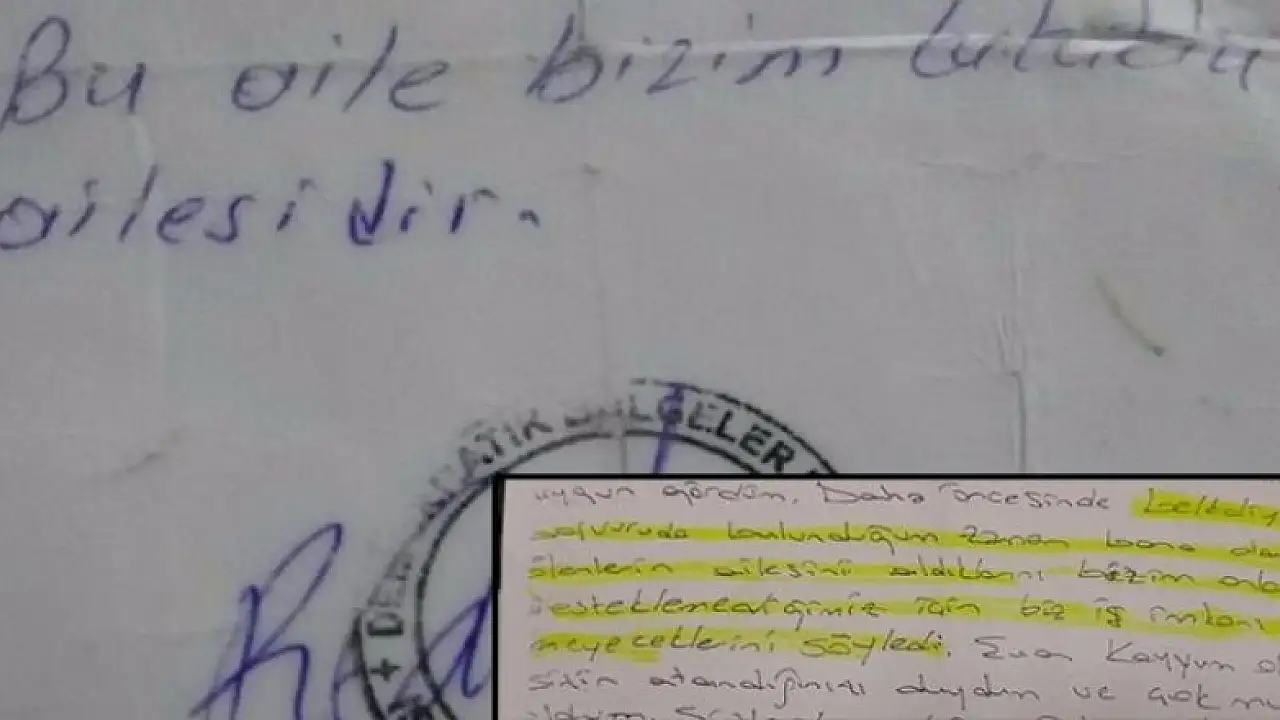 Bu aile bizim tutuklu
ailesidir.
BELGELER
uygun gördüm. Daha öncesinde belediy
başvuruda bulunduğum zaman bana da
ölenlerin ailesini aldıklarını bizim onla
desteklemediğimiz için biz iş imkanı
meyeceklerini söyledi. Şuan Kayyum
sizin atandığınızı duydum ve çok mu